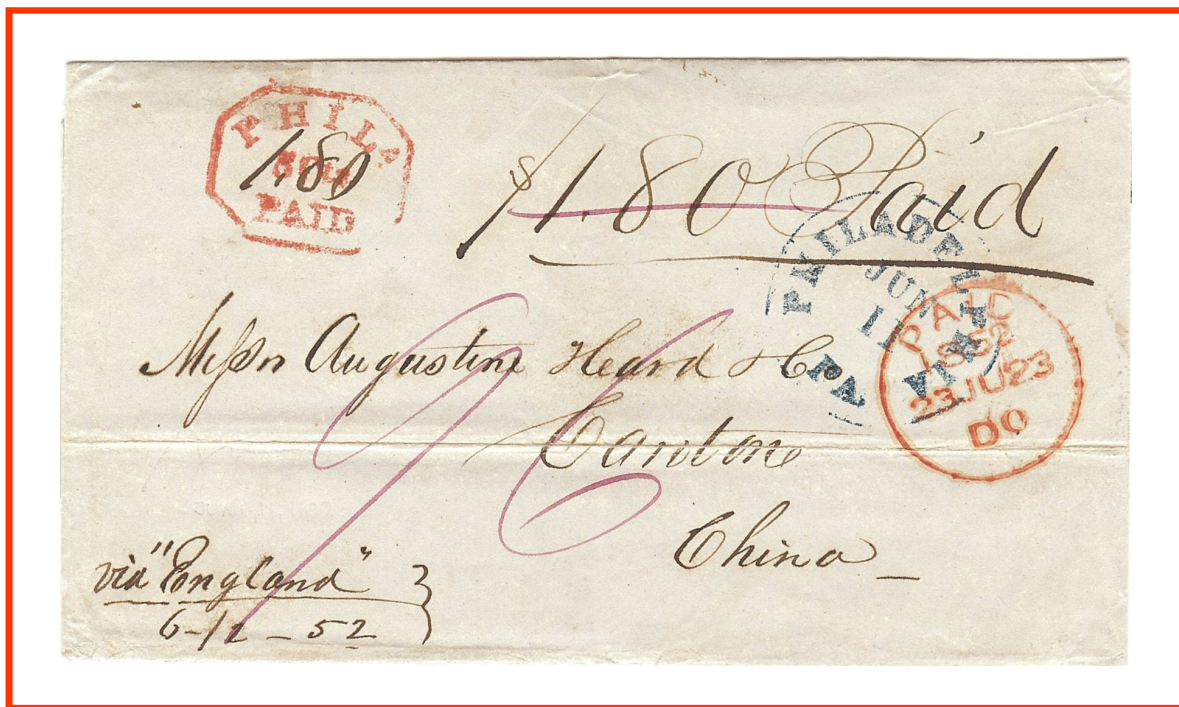 PHILA
PAID
1.80
$1.80 Paid
PHILADELPHIA
JUN
11
PA
PAID
1852
23JU23
Messrs Augustine Heard & Co
Canton
China
96
via "England"
6-12-52